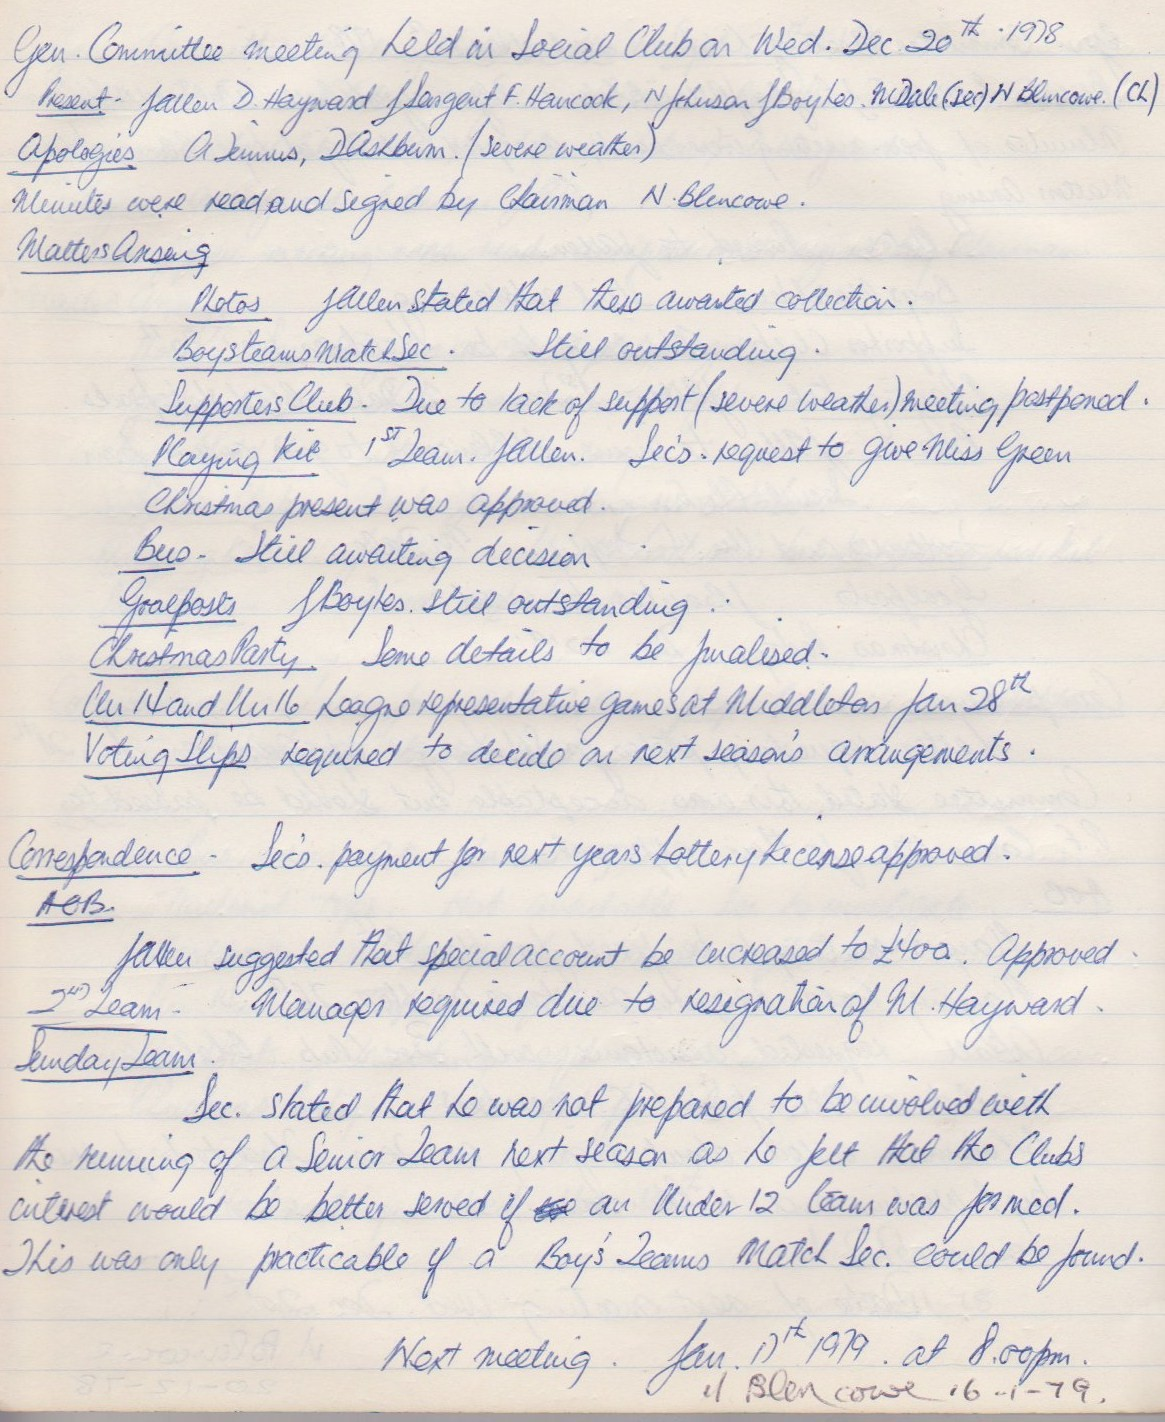 Gen. Committee meeting held in Social Club on Wed. Dec 20th. 1978
Present - J Allen D. Hayward J Sargent F. Hancock, N Johnson J Boyles. M Dale (Sec) N Blencowe. (CH)
Apologies A Timms, D Ashburn. (severe weather)
Minutes were read and signed by Chairman N. Blencowe.
Matters Arising
Photos J Allen stated that these awaited collection.
Boys teams Match Sec. Still outstanding.
Supporters Club - Due to lack of support (severe weather) meeting postponed.
Playing Kit 1ST Team. J Allen. Sec's. request to give Miss Green
Christmas present was approved.
Bus - Still awaiting decision
Goalposts J Boyles. Still outstanding.
Christmas Party. Some details to be finalised.
Un 14 and Un 16 League representative games at Middleton Jan 28th
Voting Slips required to decide on next season's arrangements.
Correspondence - Sec's. payment for next years Lottery License approved.
AOB.
J Allen suggested that special account be increased to £400. Approved.
2nd Team - Manager required due to resignation of M. Hayward.
Sunday Team.
Sec. stated that he was not prepared to be involved with
the running of a Senior Team next season as he felt that the Clubs
interest would be better served if an Under 12 team was formed.
This was only practicable if a Boy's Teams Match Sec. could be found.
Next meeting. Jan. 17th 1979. at 8.00pm.
N Blencowe 16-1-79.